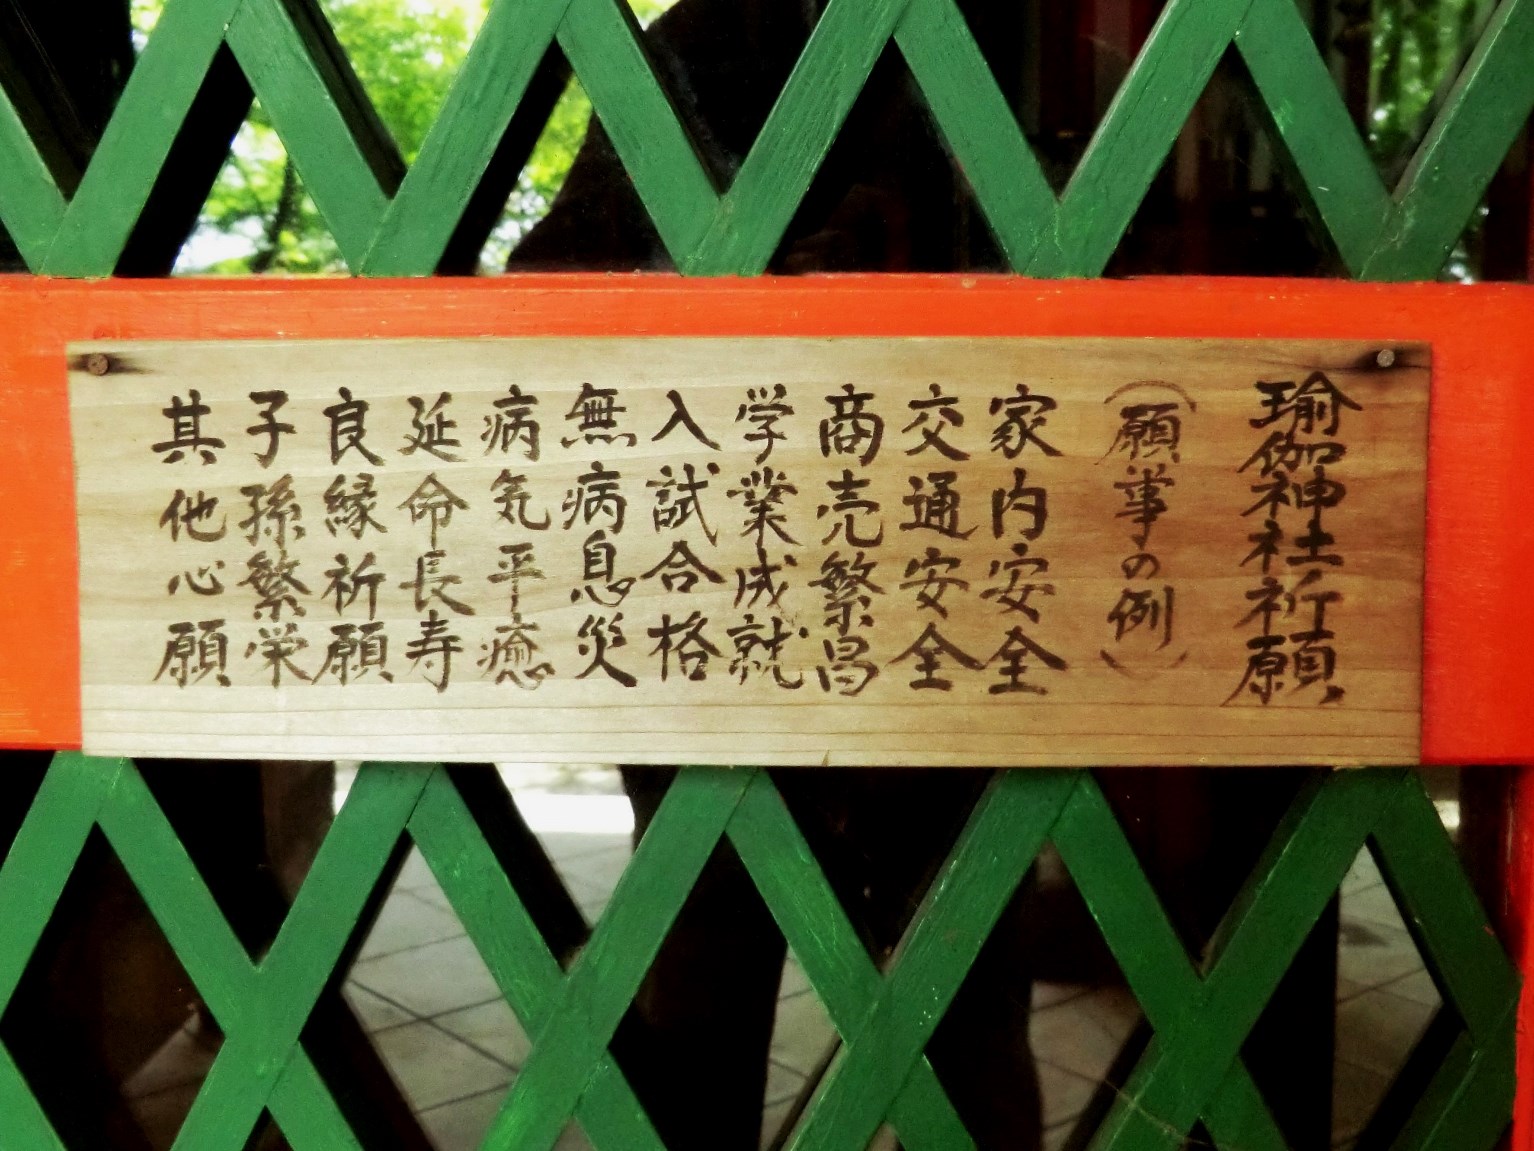 瑜伽神社祈願
（願事の例）
家内安全
交通安全
商売繁昌
学業成就
入試合格
無病息災
病気平癒
延命長寿
良縁祈願
子孫繁栄
其他心願